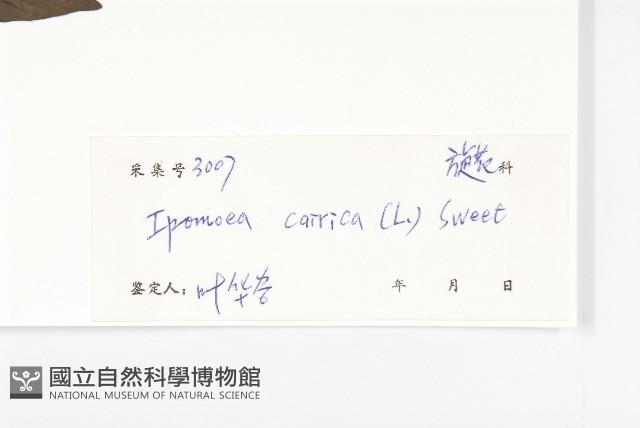 采集号 3007 旋花科
Ipomoea cairica (L.) Sweet
鉴定人：叶华谷 年 月 日
國立自然科學博物館
NATIONAL MUSEUM OF NATURAL SCIENCE